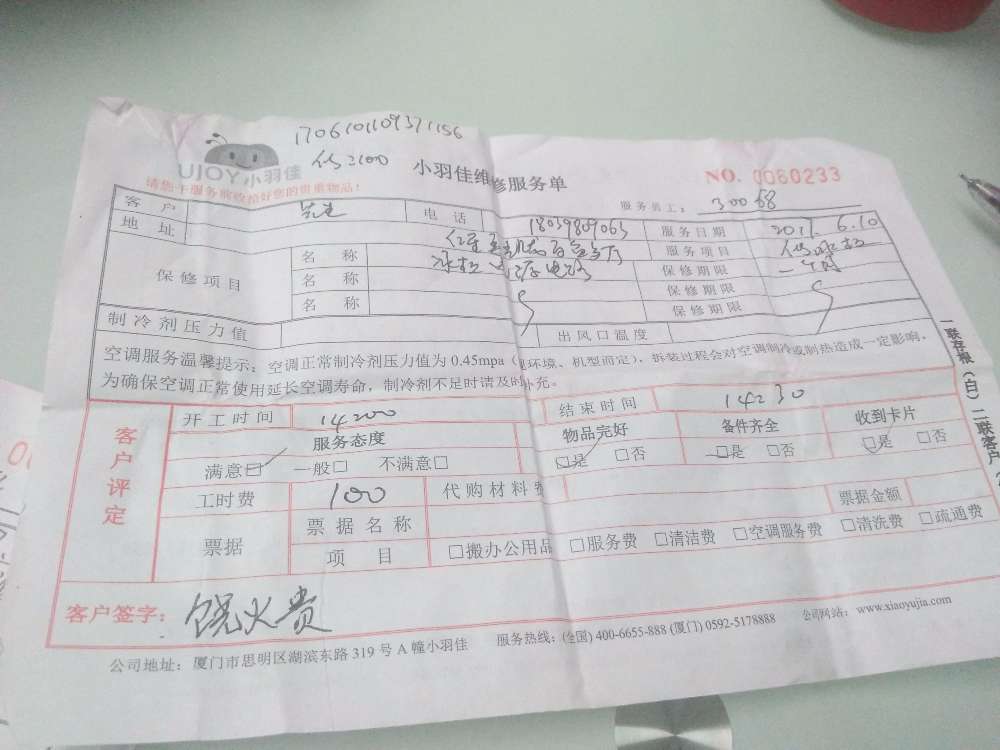 1706101109371156
UJOY小羽佳
小羽佳维修服务单
NO. 0060233
请您于服务前收拾好您的贵重物品!
服务员工: 30068
客户
电话 18039809063
服务日期 2017.6.10
地址
服务项目
保修项目
名称
保修期限
名称
保修期限
名称
保修期限
制冷剂压力值
出风口温度
空调服务温馨提示:空调正常制冷剂压力值为0.45mpa(环境、机型而定),拆装过程会对空调制冷或制热造成一定影响,
为确保空调正常使用延长空调寿命,制冷剂不足时请及时补充。
客户评定
开工时间 14:00
结束时间 14:30
服务态度
物品完好
备件齐全
收到卡片
满意□ 一般□ 不满意□
□是 □否
□是 □否
□是 □否
工时费 100
代购材料费
票据
票据名称
票据金额
项目
□搬办公用品 □服务费 □清洁费 □空调服务费 □清洗费 □疏通费
客户签字: 饶火贵
公司地址:厦门市思明区湖滨东路319号A幢小羽佳
服务热线:(全国)400-6655-888(厦门)0592-5178888
公司网站:www.xiaoyujia.com
一联存根(白)二联客户